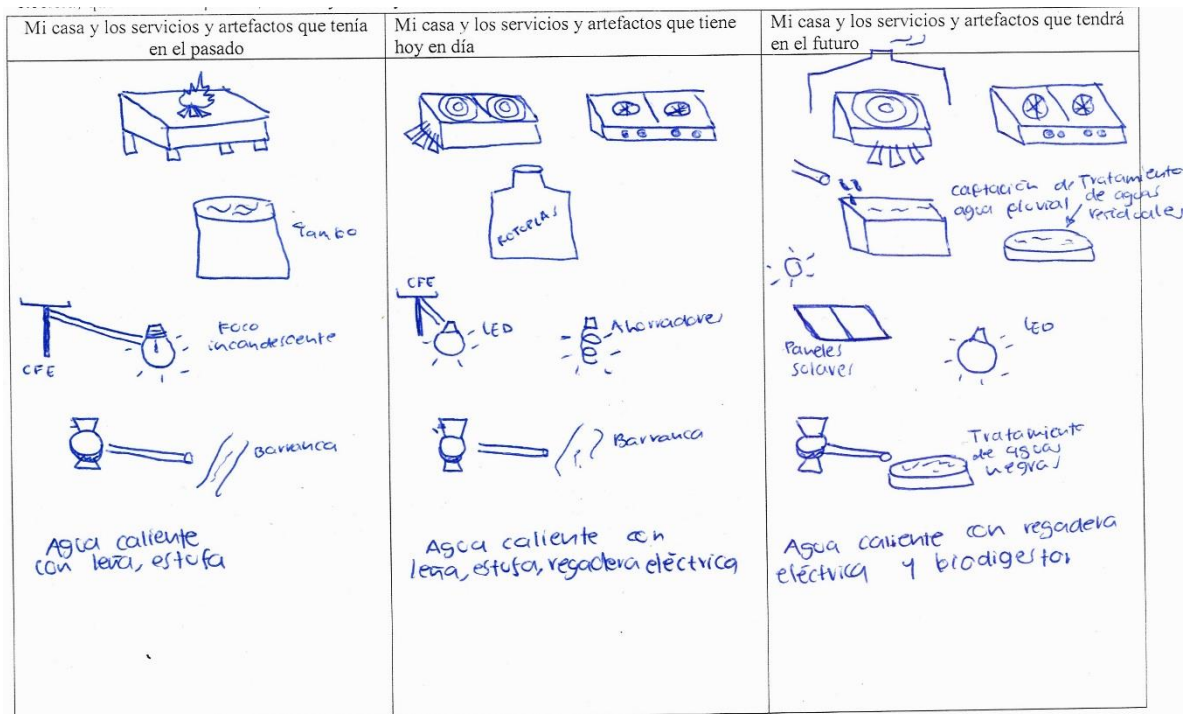 Mi casa y los servicios y artefactos que tenía
en el pasado
Mi casa y los servicios y artefactos que tiene
hoy en día
Mi casa y los servicios y artefactos que tendrá
en el futuro
Tambo
CFE
Foco
incandescente
Barranca
Agua caliente
con leña, estufa
ROTOPLAS
CFE
LED
Ahorradores
Barranca
Agua caliente con
leña, estufa, regadera eléctrica
captación de
agua pluvial
Tratamiento
de aguas
residuales
Paneles
solares
LED
Tratamiento
de aguas
negras
Agua caliente con regadera
eléctrica y biodigestor